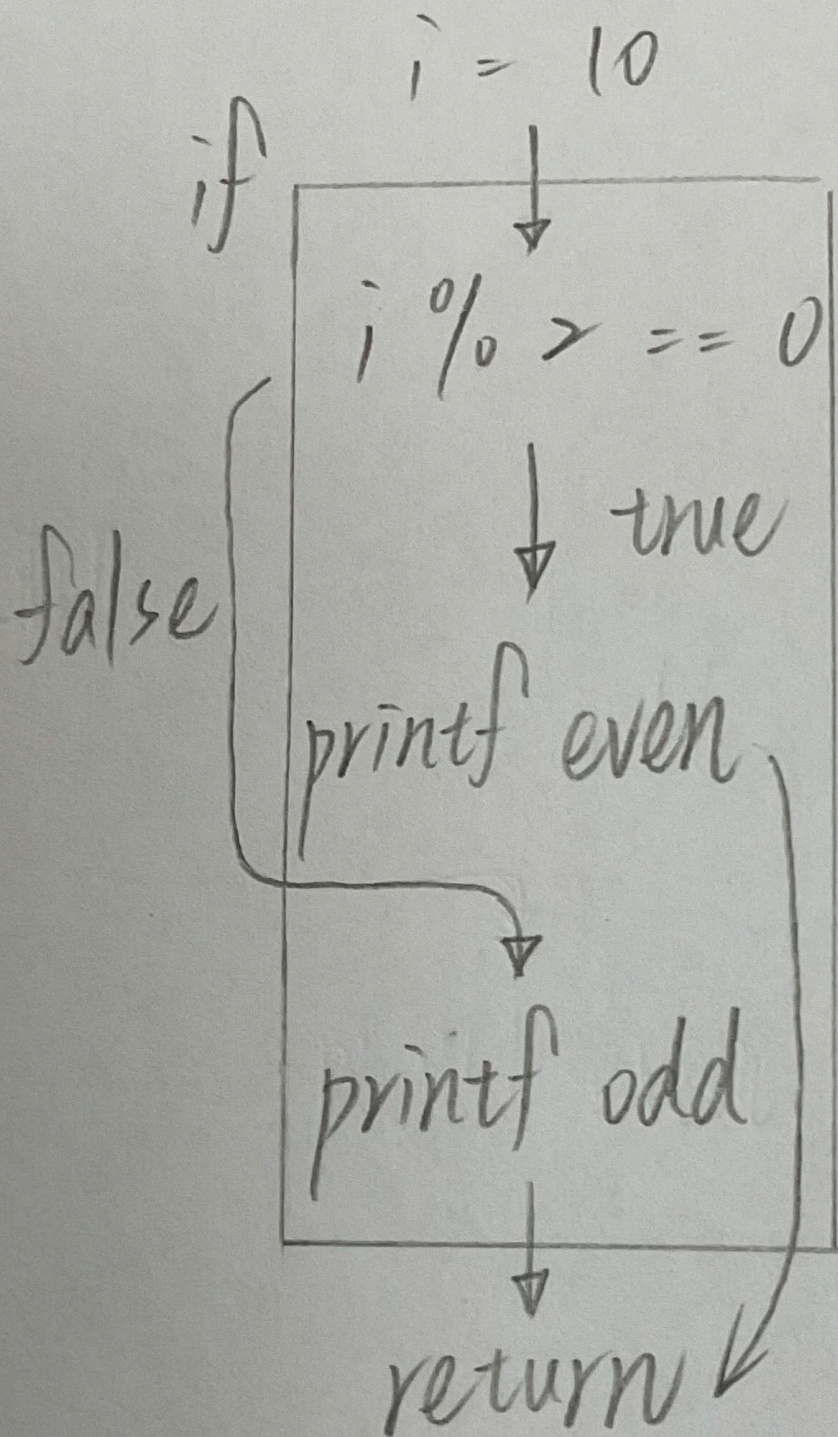 i = 10
if
i % 2 == 0
true
false
printf even
printf odd
return